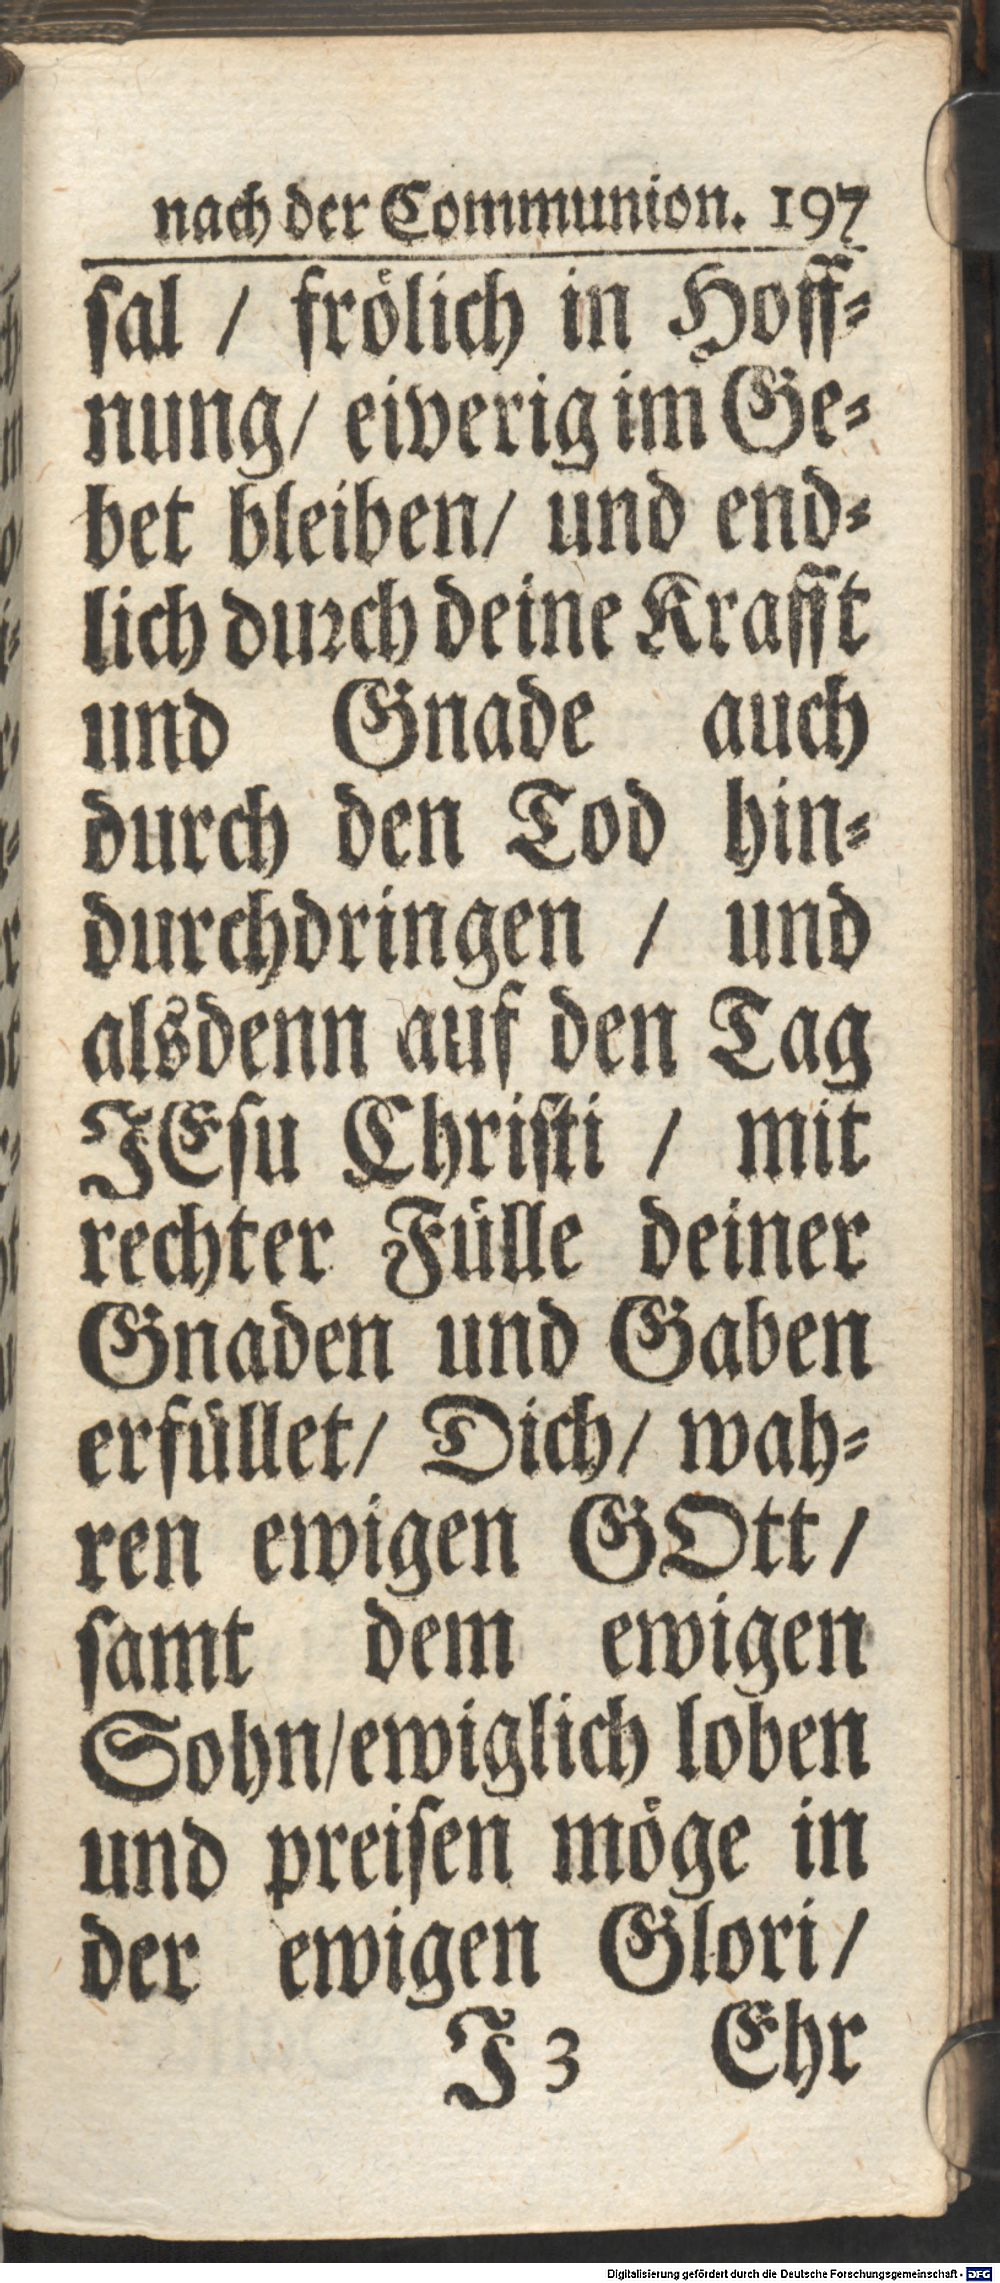 nach der Communion. 197
sal / frölich in Hoff-
nung/ eiverig im Ge-
bet bleiben/ und end-
lich durch deine Krafft
und Gnade auch
durch den Tod hin-
durchdringen / und
alsdenn auf den Tag
JEsu Christi / mit
rechter Fülle deiner
Gnaden und Gaben
erfüllet/ Dich/ wah-
ren ewigen GOtt /
samt dem ewigen
Sohn/ewiglich loben
und preisen möge in
der ewigen Glori/
J 3 Ehr
Digitalisierung gefördert durch die Deutsche Forschungsgemeinschaft - DFG